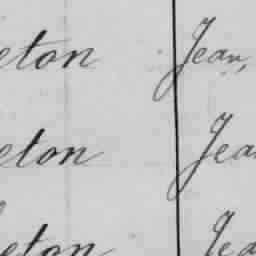 eton Jean,
eton Jea
eton Jea